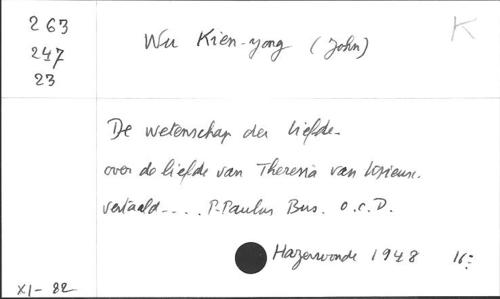 263
247
23
Wu Kien-yong (John)
K
De wetenschap der liefde.
over de liefde van Theresia van Lisieux.
vertaald.... P. Paulus Bus. O.C.D.
Hazerswoude 1948 16:
XI - 82